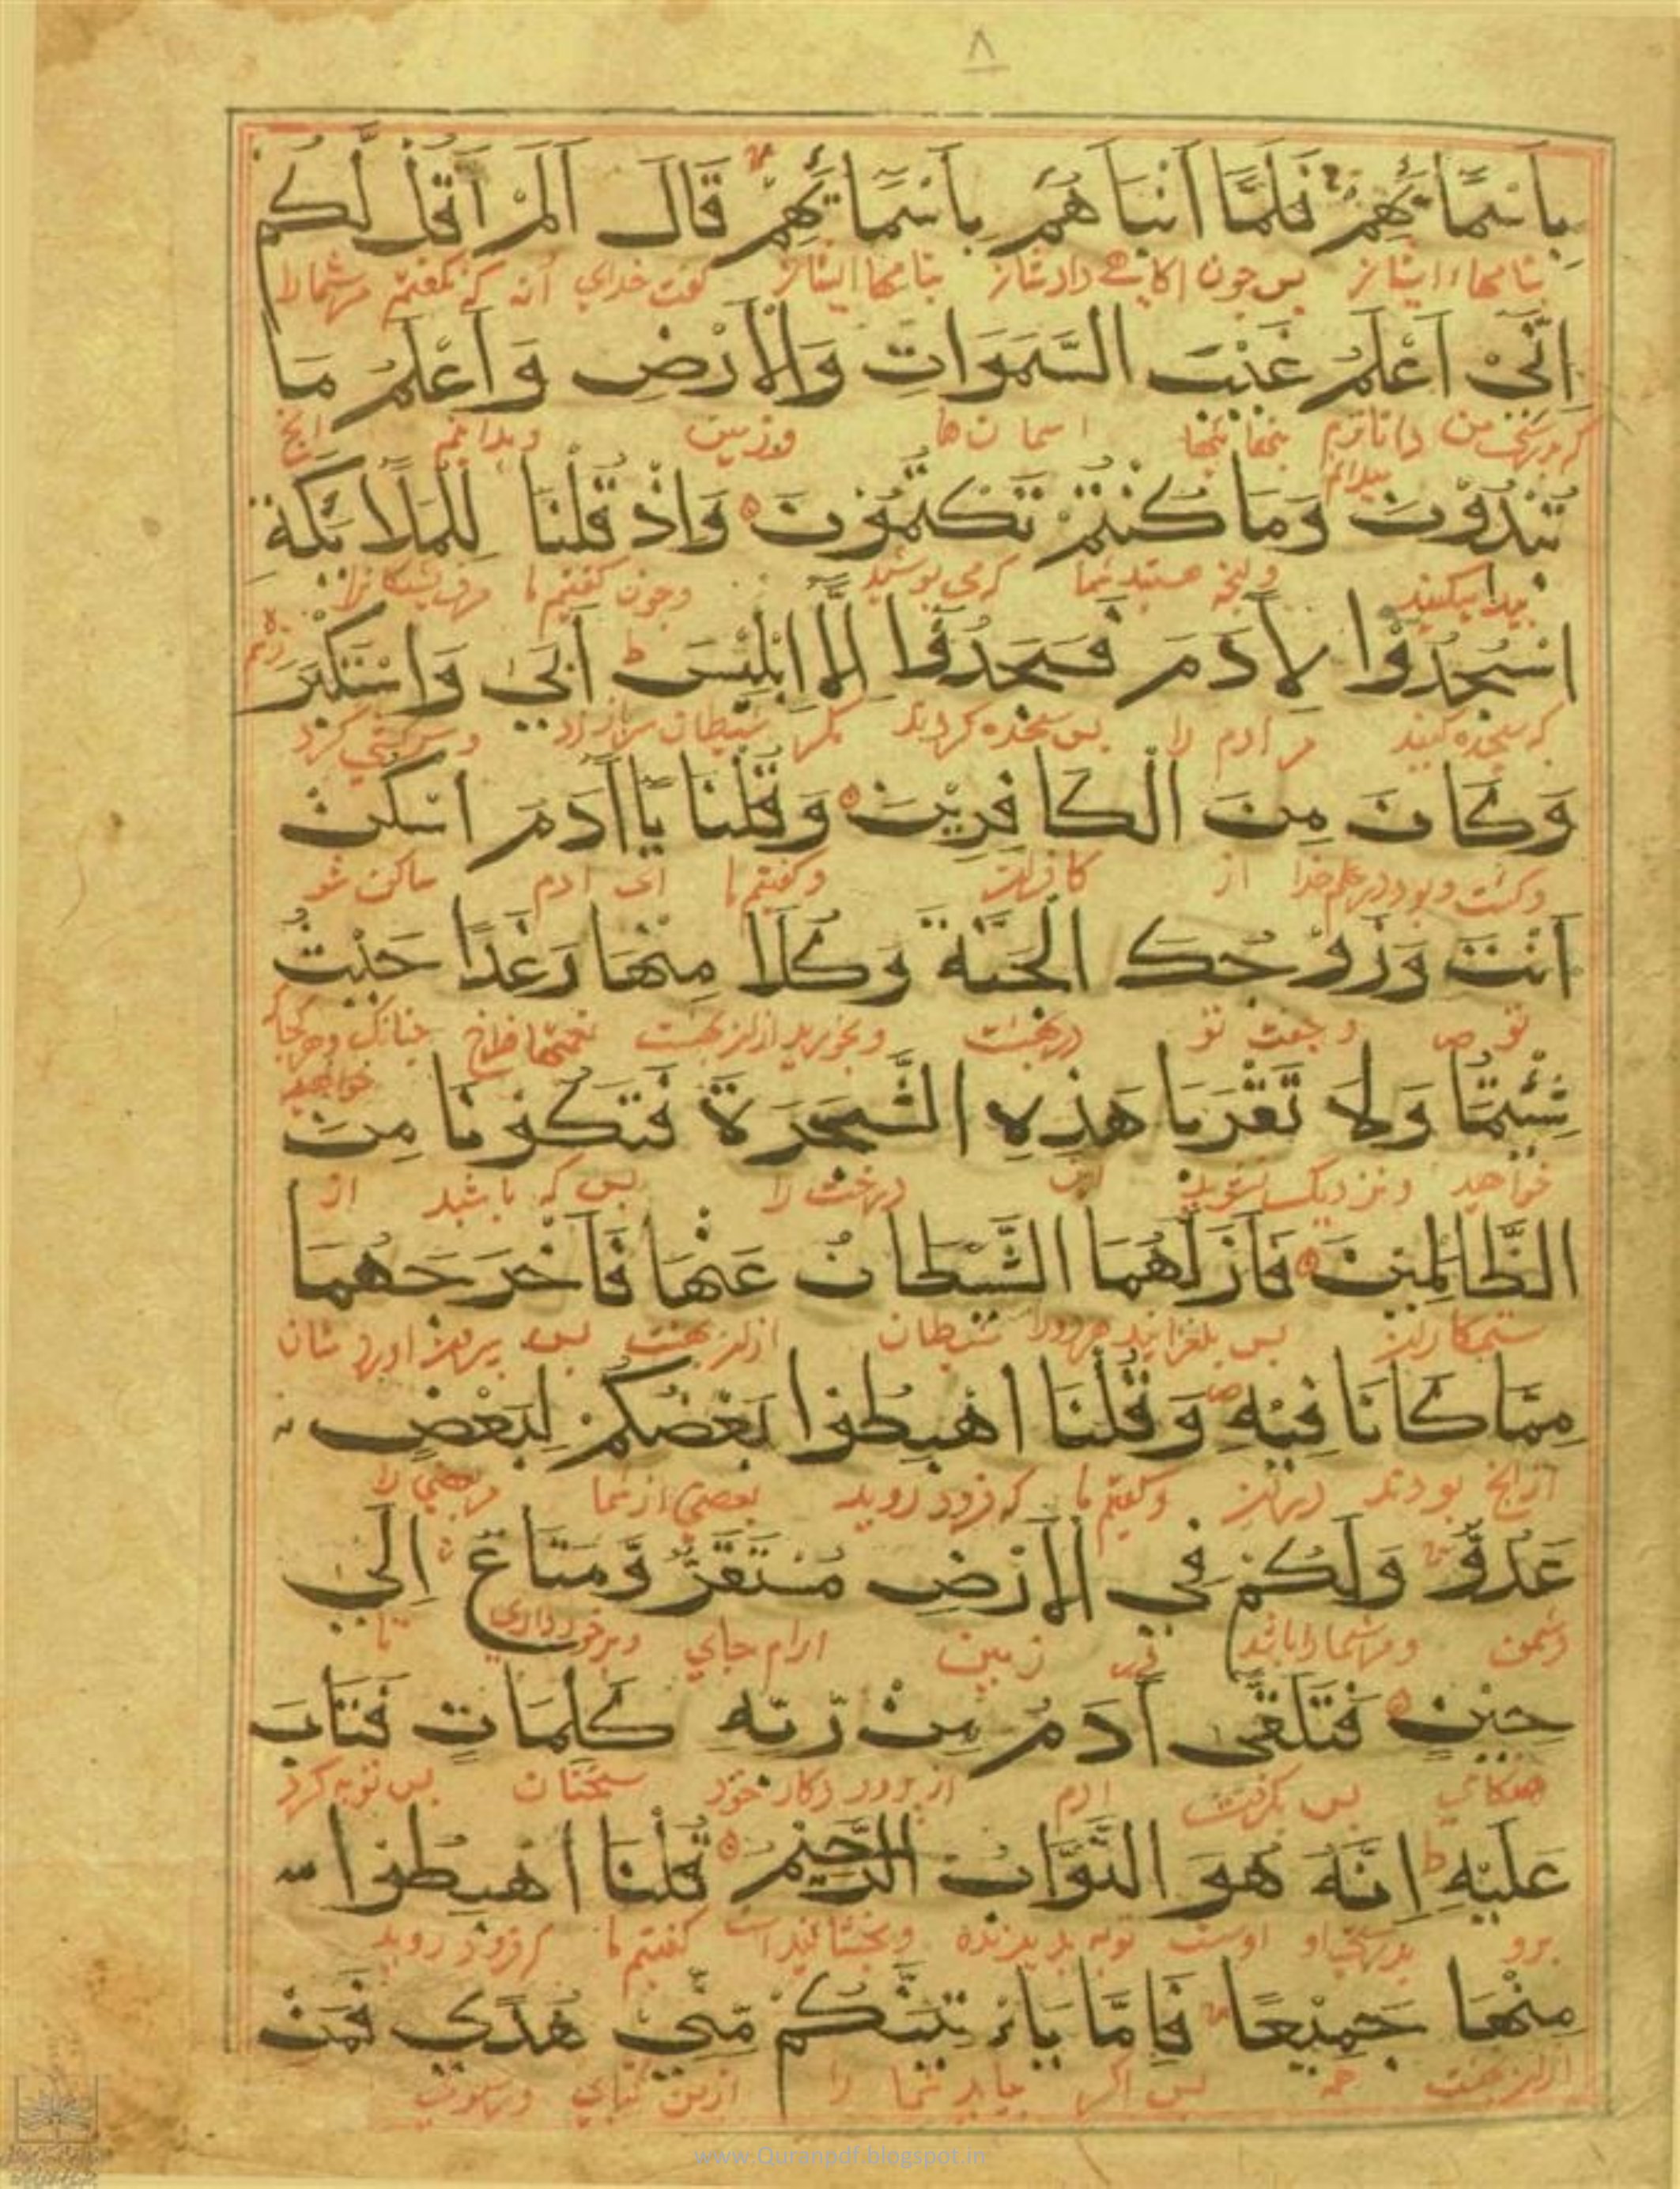 ٨
بِاَسْمَآئِهِمْ فَلَمَّا اَنْبَاَهُمْ بِاَسْمَآئِهِمْ قَالَ اَلَمْ اَقُلْ لَّكُمْ
بنامهاء ایشان پس چون اکاهی داد شان بنامها ایشان کفت خدای انه که نکفتم مر شما را
اِنِّيْ اَعْلَمُ غَيْبَ السَّمَوَاتِ وَالْاَرْضِ وَاَعْلَمُ مَا
من دانا ترم اسمان ها وزمین و بدانم انج
تُبْدُوْنَ وَمَا كُنْتُمْ تَكْتُمُوْنَ وَاِذْ قُلْنَا لِلْمَلَائِكَةِ
پیدا میکنید وانچه هستید شما که می پوشید وچون کفتیم ما
اسْجُدُوْا لِاٰدَمَ فَسَجَدُوْا اِلَّا اِبْلِيْسَ ط اَبَى وَاسْتَكْبَرَ
که سجده کنید مر ادم را پس سجده کردند مکر شیطان سر باز زد و سرکشی کرد
وَكَانَ مِنَ الْكَافِرِيْنَ وَقُلْنَا يَااٰدَمُ اسْكُنْ
وکشت و بود در علم خدا از کافران وکفتیم ما ای ادم ساکن شو
اَنْتَ وَزَوْجُكَ الْجَنَّةَ وَكُلَا مِنْهَا رَغَدًا حَيْثُ
تو و جفت تو در بهشت وبخورید ازان بهشت نعمتها فراخ
شِئْتُمَا وَلَا تَقْرَبَا هَذِهِ الشَّجَرَةَ فَتَكُوْنَا مِنَ
خواهید ونزدیک نشوید این درخت را پس که باشید از
الظَّالِمِيْنَ فَاَزَلَّهُمَا الشَّيْطَانُ عَنْهَا فَاَخْرَجَهُمَا
ستمکاران پس بلغزانید هر دو را شیطان ازان بهشت پس بیرون اورد شان
مِمَّا كَانَا فِيْهِ ص وَقُلْنَا اهْبِطُوْا بَعْضُكُمْ لِبَعْضٍ
از انج بودند دران وکفتیم ما که فرود روید بعضی از شما مر بعضی را
عَدُوٌّ وَلَكُمْ فِي الْاَرْضِ مُسْتَقَرٌّ وَّمَتَاعٌ اِلَى
دشمن ومر شما را باشد در زمین ارام جای وبرخورداری تا
حِيْنٍ فَتَلَقَّى اٰدَمُ مِنْ رَّبِّهِ كَلِمَاتٍ فَتَابَ
هنکامی پس بکرفت ادم از پروردکار خود سخنان پس توبه کرد
عَلَيْهِ ط اِنَّهُ هُوَ التَّوَّابُ الرَّحِيْمُ قُلْنَا اهْبِطُوْا
برو بدرستی او اوست توبه پذیرنده و بخشاینده است کفتیم ما که فرود روید
مِنْهَا جَمِيْعًا فَاِمَّا يَاْتِيَنَّكُمْ مِّنِّي هُدًى فَمَنْ
ازان بهشت همه پس اکر بیاید شما را ازمن کتابی و رسول
www.Quranpdf.blogspot.in